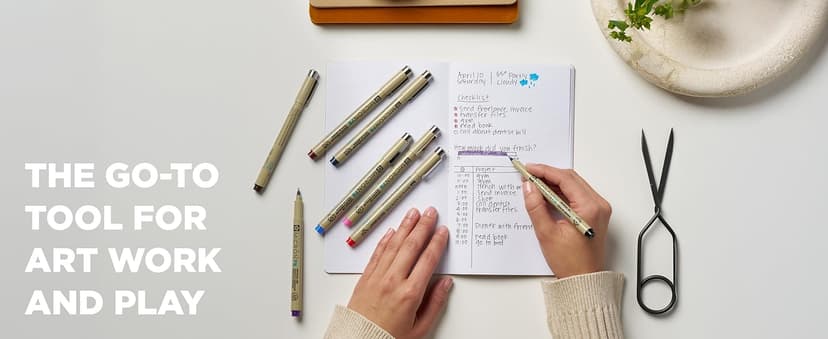 THE GO-TO
TOOL FOR
ART WORK
AND PLAY
April 10
Saturday
55° Partly
Cloudy
Checklist
send freelance invoice
transfer files
gym
read book
call about dentist bill
How much did you finish?
Project
gym
send invoice
call dentist
transfer files
Dinner with friends
read book
go to bed